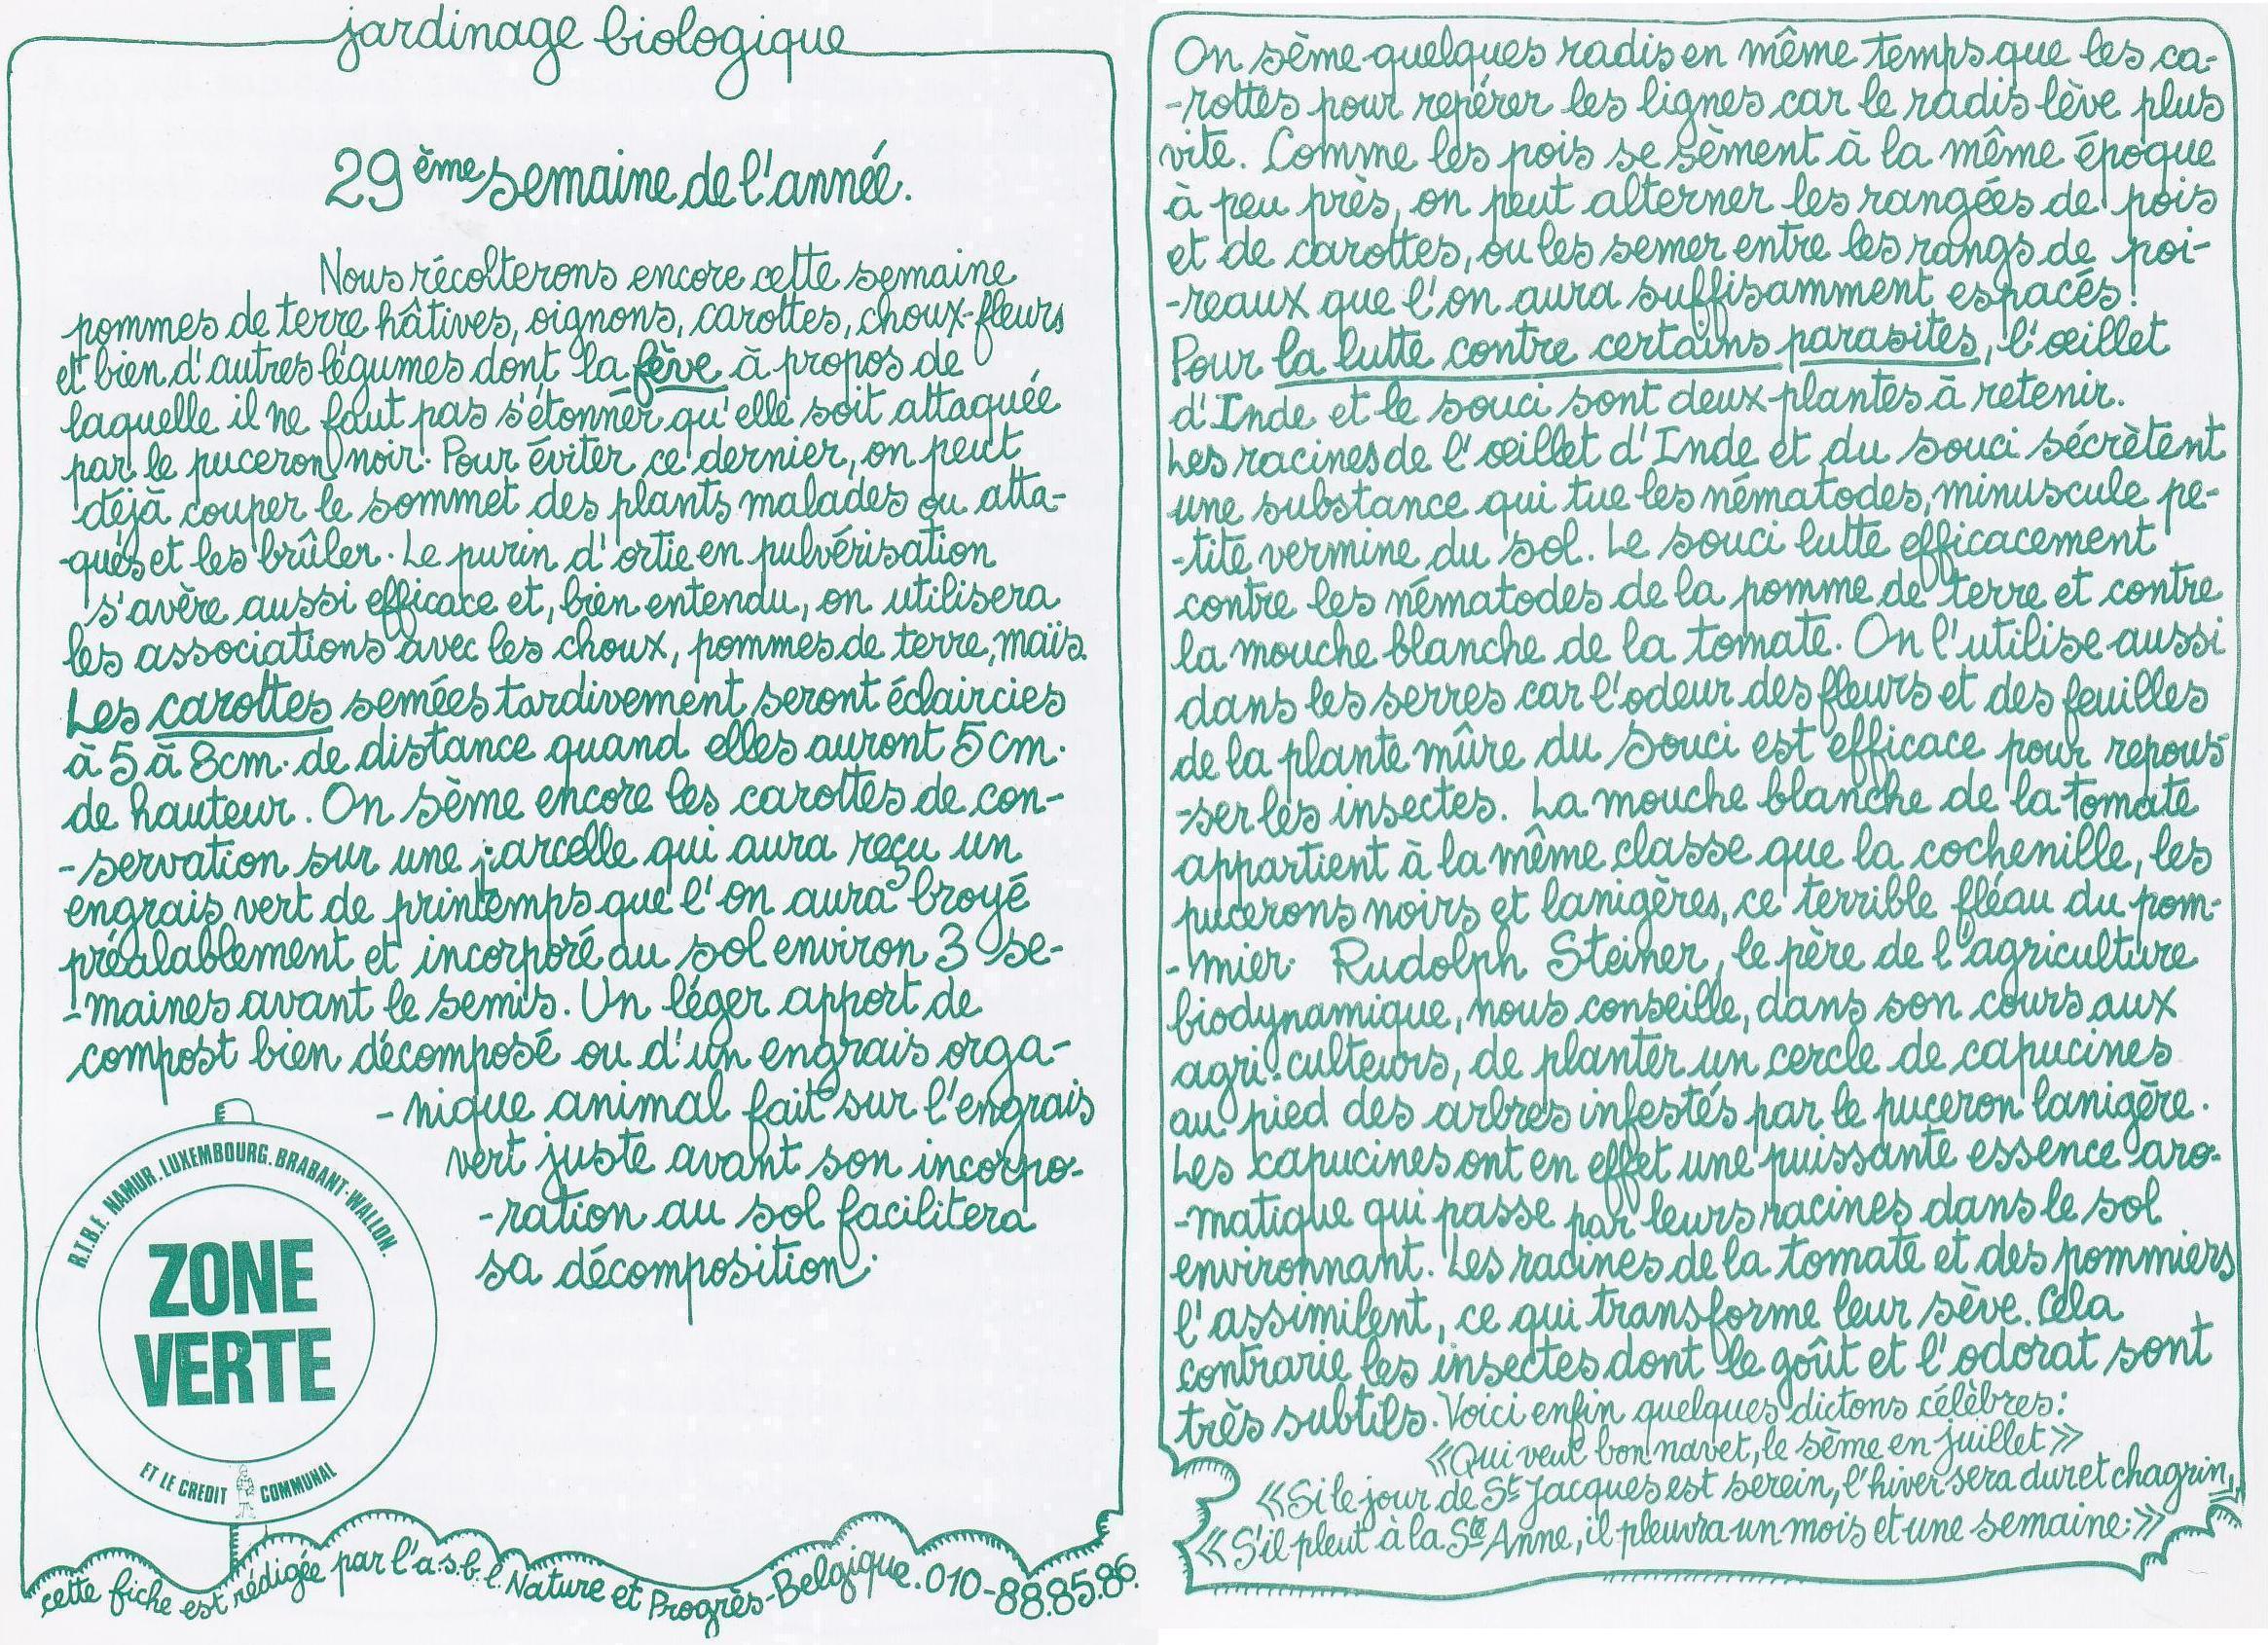 jardinage biologique
29ème semaine de l'année.
Nous récolterons encore cette semaine
pommes de terre hâtives, oignons, carottes, choux-fleurs
et bien d'autres légumes dont la fève à propos de
laquelle il ne faut pas s'étonner qu'elle soit attaquée
par le puceron noir. Pour éviter ce dernier, on peut
déjà couper le sommet des plants malades ou atta-
-qués et les brûler. Le purin d'ortie en pulvérisation
s'avère aussi efficace et, bien entendu, on utilisera
les associations avec les choux, pommes de terre, maïs.
Les carottes semées tardivement seront éclaircies
à 5 à 8cm. de distance quand elles auront 5 cm.
de hauteur. On sème encore les carottes de con-
-servation sur une parcelle qui aura reçu un
engrais vert de printemps que l'on aura broyé
préalablement et incorporé au sol environ 3 se-
-maines avant le semis. Un léger apport de
compost bien décomposé ou d'un engrais orga-
-nique animal fait sur l'engrais
vert juste avant son incorpo-
-ration au sol facilitera
sa décomposition.
R.T.B.F. NAMUR. LUXEMBOURG. BRABANT-WALLON.
ZONE
VERTE
ET LE CREDIT COMMUNAL
cette fiche est rédigée par l'a.s.b.l. Nature et Progrès-Belgique. 010-88.85.86.
On sème quelques radis en même temps que les ca-
-rottes pour repérer les lignes car le radis lève plus
vite. Comme les pois se sèment à la même époque
à peu près, on peut alterner les rangées de pois
et de carottes, ou les semer entre les rangs de poi-
-reaux que l'on aura suffisamment espacés!
Pour la lutte contre certains parasites, l'œillet
d'Inde et le souci sont deux plantes à retenir.
Les racines de l'œillet d'Inde et du souci sécrètent
une substance qui tue les nématodes, minuscule pe-
-tite vermine du sol. Le souci lutte efficacement
contre les nématodes de la pomme de terre et contre
la mouche blanche de la tomate. On l'utilise aussi
dans les serres car l'odeur des fleurs et des feuilles
de la plante mûre du souci est efficace pour repous-
-ser les insectes. La mouche blanche de la tomate
appartient à la même classe que la cochenille, les
pucerons noirs et lanigères, ce terrible fléau du pom-
-mier. Rudolph Steiner, le père de l'agriculture
biodynamique, nous conseille, dans son cours aux
agri-culteurs, de planter un cercle de capucines
au pied des arbres infestés par le puceron lanigère.
Les capucines ont en effet une puissante essence aro-
-matique qui passe par leurs racines dans le sol
environnant. Les racines de la tomate et des pommiers
l'assimilent, ce qui transforme leur sève. Cela
contrarie les insectes dont le goût et l'odorat sont
très subtils. Voici enfin quelques dictons célèbres:
«Qui veut bon navet, le sème en juillet»
«Si le jour de St Jacques est serein, l'hiver sera dur et chagrin»
«S'il pleut à la Ste Anne, il pleuvra un mois et une semaine:»